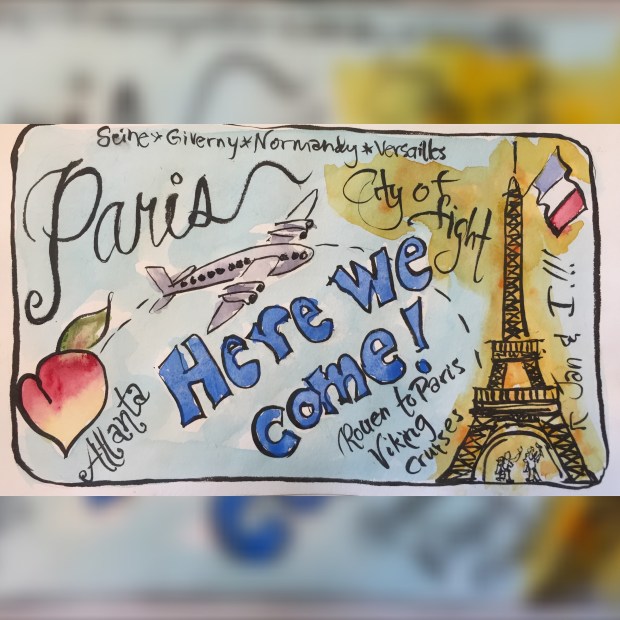 Seine * Giverny * Normandy * Versailles
Paris
City of
Light
Here we
come!
Atlanta
Rouen to Paris
Viking
cruises